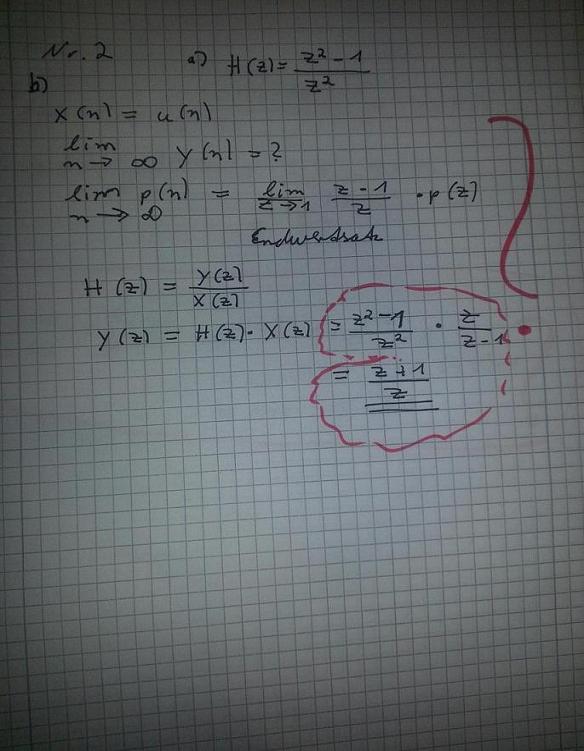 Nr. 2 a) H(z) = (z² - 1) / z²
b)
x(n) = u(n)
lim n→∞ y(n) = ?
lim n→∞ p(n) = lim z→1 (z - 1) / z · p(z)
Endwertsatz
H(z) = Y(z) / X(z)
Y(z) = H(z) · X(z) = (z² - 1) / z² · z / (z - 1)
= (z + 1) / z